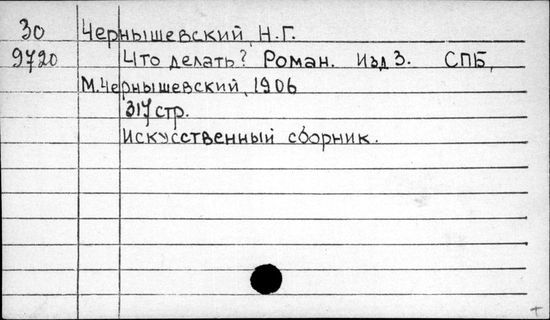 30 Чернышевский, Н.Г.
9720 Что делать? Роман. Изд 3. СПБ,
М.Чернышевский, 1906
317 стр.
Искусственный сборник.